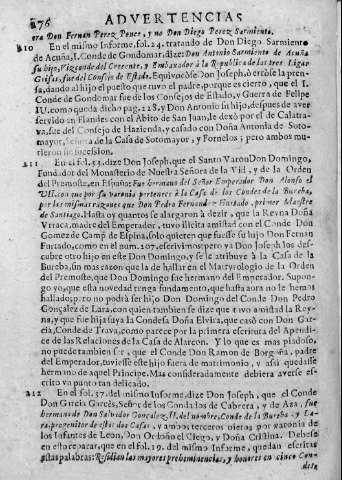 276 ADVERTENCIAS
era Don Fernan Perez Ponce, y no Don Diego Perez Sarmiento.
210 En el mismo Informe, fol. 24. tratando de Don Diego Sarmiento
de Acuña, I. Conde de Gondomar, dize: Don Antonio Sarmiento de Acuña
su hijo, Vizconde del Crecente, y Embaxador à la Republica de las tres Ligas
Grisas, fue del Consejo de Estado. Equivocòse Don Joseph, ò erròse la prensa,
dando al hijo el puesto que tuvo el padre, porque es cierto, que el I.
Conde de Gondomar fue de los Consejos de Estado, y Guerra de Felipe
IV. como queda dicho pag. 228. y Don Antonio su hijo, despues de aver
servido en Flandes con el Abito de San Juan, le dexò por el de Calatrava,
fue del Consejo de Hazienda, y casado con Doña Antonia de Sotomayor,
señora de la Casa de Sotomayor, y Fornelos; pero ambos murieron
sin sucession.
211 En el fol. 53. dize Don Joseph, que el Santo Varon Don Domingo,
Fundador del Monasterio de Nuestra Señora de la Vid, y de la Orden
del Premostre, en España: Fue hermano del Señor Emperador Don Alonso el
VII. con que por su varonia pertenece à la Casa de los Condes de la Bureba,
por las mismas razones que Don Pedro Fernandez Hurtado, primer Maestre
de Santiago. Hasta oy quantos se alargaron à dezir, que la Reyna Doña
Vrraca, madre del Emperador, tuvo ilicita amistad con el Conde Don
Gomez de Camp de Espina, solo quieren que fuesse su hijo Don Fernan
Furtado, como en el num. 207. escrivimos; pero ya Don Joseph los descubre
otro hijo en este Don Domingo, y se le atribuye à la Casa de la
Bureba, sin mas razon que la de hallar en el Martyrologio de la Orden
del Premostre, que Don Domingo fue hermano del Emperador. Supongo
yo, que esta novedad tenga fundamento, que hasta aora no le hemos
hallado; pero no podrà ser hijo Don Domingo del Conde Don Pedro
Gonçalez de Lara, con quien tambien se dize que tuvo amistad la Reyna,
y que fue hija suya la Condesa Doña Elvira, que casò con Don Garcia,
Conde de Trava, como parece por la primera escritura del Apendice
de las Relaciones de la Casa de Alarcon. Y lo que es mas piadoso,
no puede tambien ser, que el Conde Don Ramon de Borgoña, padre
del Emperador, tuviesse este hijo fuera de matrimonio, y assi quedasse
hermano de aquel Principe. Mas consideradamente debiera averse escrito
va punto tan delicado.
212 En el fol. 37. del mismo Informe, dize Don Joseph, que el Conde
Don Garcia Garcès, Señor de los Condados de Cabrera, y de Aza, fue
hermano de Don Salvador Gonçalez, II. del nombre, Conde de la Bureba, y Lara,
progenitor de estas dos Casas, y ambos, terceros nietos por varonia de
los Infantes de Leon, Don Ordoño el Ciego, y Doña Cristina. Debese
en esto reparar, que en el fol. 19. del mismo Informe, quedan escritas
estas palabras: Residian las mayores prehemi[n]encias, y honores en cinco Condeta